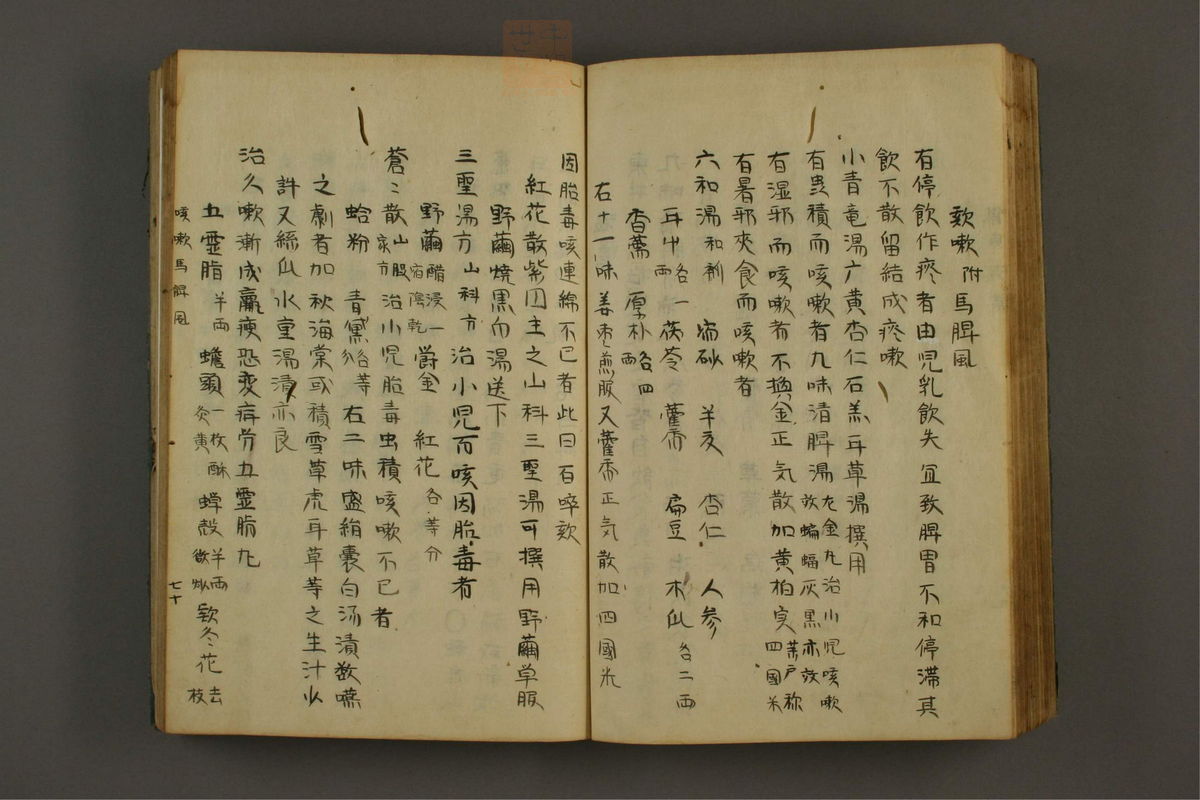 欬嗽 附 馬脾風
有停飲作痰者由児乳飲失宜致脾胃不和停滞其
飲不散留結成痰嗽
小青竜湯广黄杏仁石羔耳草湯撰用
有虫積而咳嗽者九味清脾湯 龙金丸治小児咳嗽
效蝙蝠灰黒亦效
有湿邪而咳嗽者不換金正気散加黄柏実 若戸称
四國米
有暑邪夾食而咳嗽者
六和湯 和剤 宿砂 半夏 杏仁 人参
耳中 各一両 茯苓 藿香 扁豆 木瓜 各二両
香薷 厚朴 各四両
右十一味姜枣煎服又藿香正気散加四國米
因胎毒咳連綿不已者此曰百啐欬
紅花散紫円主之山科三聖湯可撰用野繭草服
野繭焼黒白湯送下
三聖湯方 山科方 治小児百咳因胎毒者
野繭 醋浸一宿陰乾 爵金 紅花 各等分
蒼〻散 山股家方 治小児胎毒虫積咳嗽不已者
蛤粉 青黛 各等 右二味盛絹囊白汤漬数嚥
之劇者加秋海棠或積雪草虎耳草等之生汁少
許又絲瓜水童湯漬亦良
治久嗽漸成羸痩恐変疳労五霊脂丸
五霊脂 半両 蟾頭 一枚酥灸黄 蝉殻 半両微炒 欵冬花 去枝
咳嗽馬脾風
七十